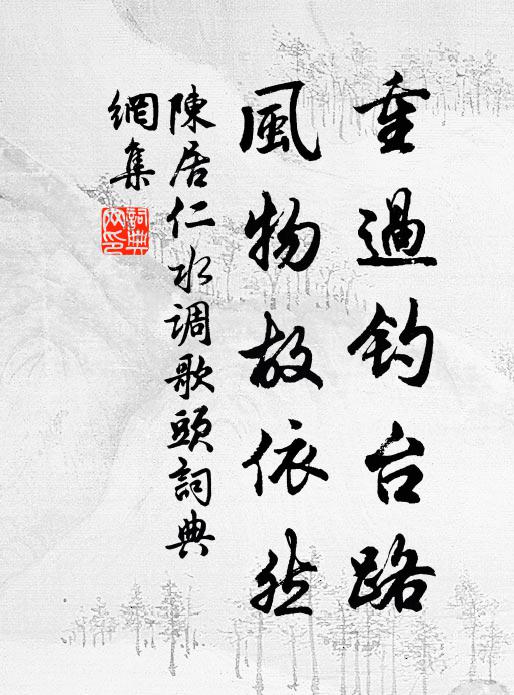 重過釣台路
風物故依然
陳居仁水调歌頭詞典
網集
詞典网印